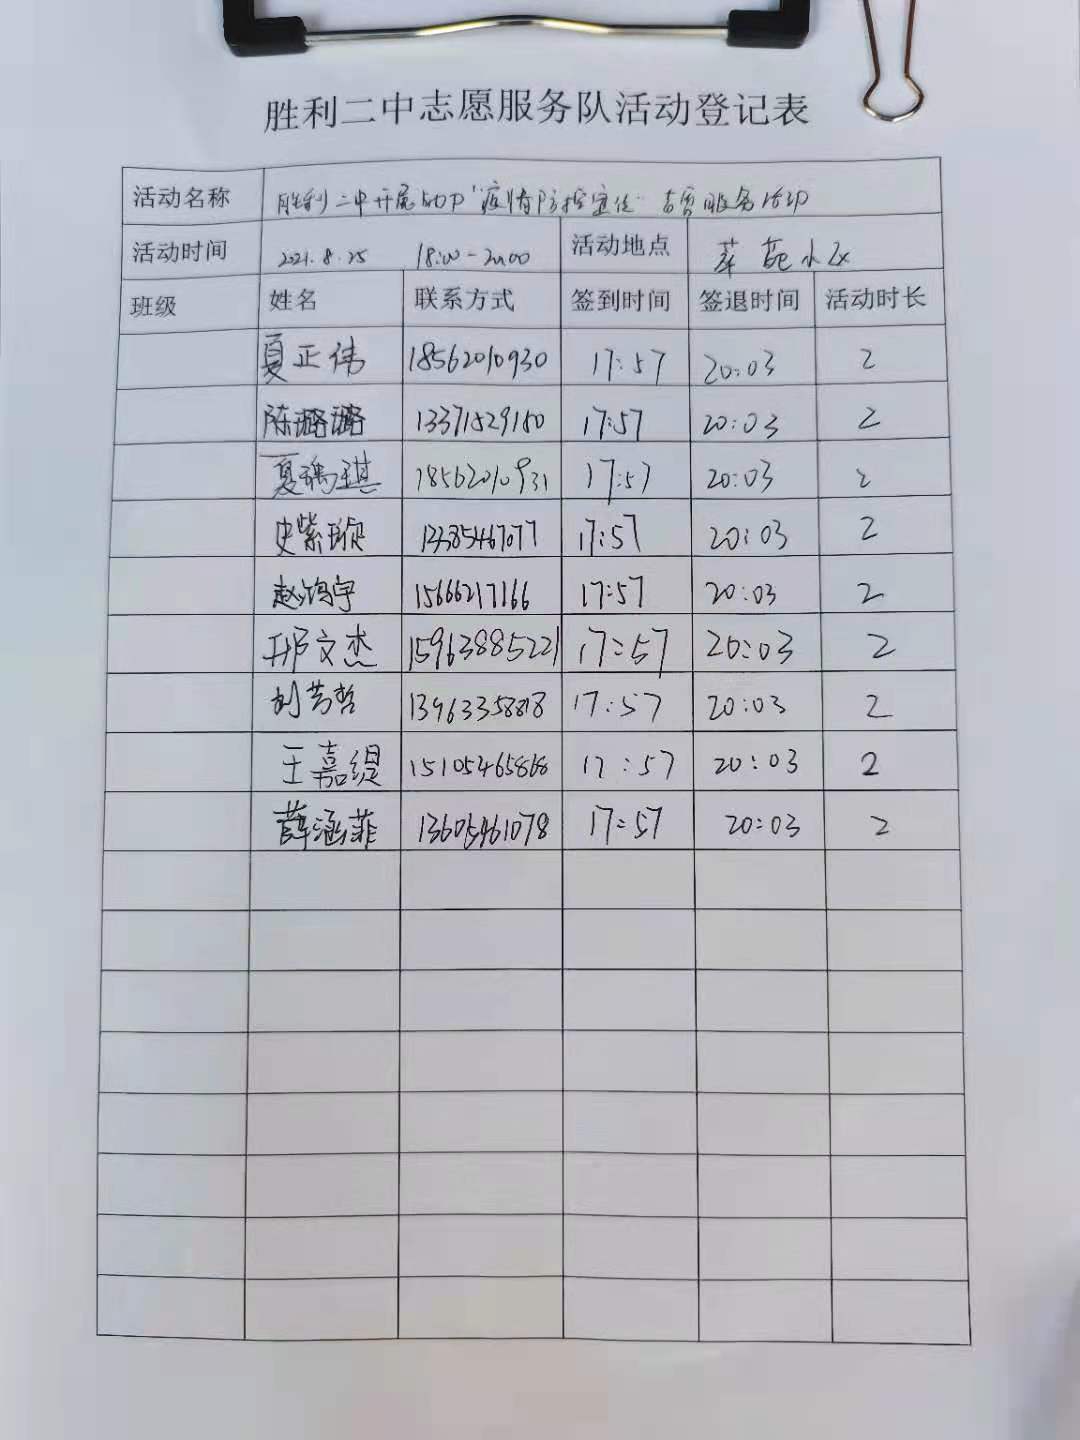 胜利二中志愿服务队活动登记表
活动名称 胜利二中开展 "疫情防控宣传" 志愿服务活动
活动时间 2021.8.25 18:00-20:00 活动地点 萃苑小区
班级 姓名 联系方式 签到时间 签退时间 活动时长
夏正伟 18562010930 17:57 20:03 2
陈璐璐 13371529150 17:57 20:03 2
夏瑀琪 18562010931 17:57 20:03 2
史紫璇 13385467077 17:57 20:03 2
赵鸿宇 15666217166 17:57 20:03 2
邢文杰 15963885221 17:57 20:03 2
刘芳哲 13963358818 17:57 20:03 2
王嘉缇 15105465868 17:57 20:03 2
薛涵菲 13605461078 17:57 20:03 2